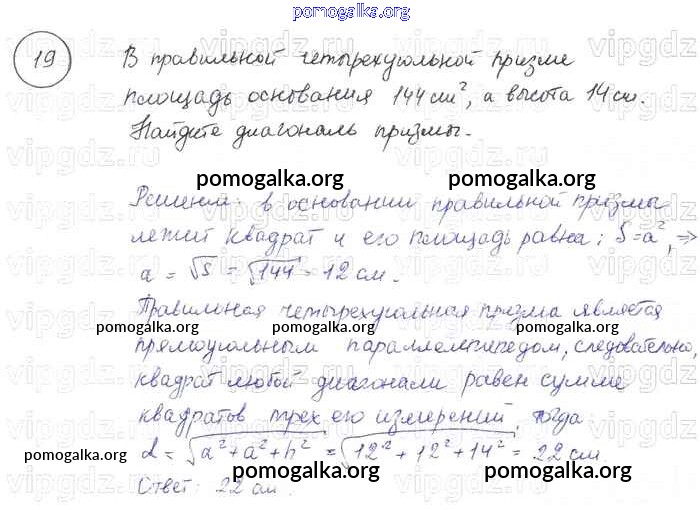 pomogalka.org
19
В правильной четырехугольной призме
площадь основания 144 см², а высота 14 см.
Найдите диагональ призмы.
pomogalka.org pomogalka.org
Решение: в основании правильной призмы
лежит квадрат и его площадь равна: S=a², ⇒
a = √S = √144 = 12 см.
Правильная четырехугольная призма является
pomogalka.org pomogalka.org pomogalka.org
прямоугольным параллелепипедом, следовательно,
квадрат любой диагонали равен сумме
квадратов трех его измерений, тогда:
pomogalka.org pomogalka.org
d = √a²+a²+h² = √12²+12²+14² = 22 см.
pomogalka.org pomogalka.org pomogalka.org
Ответ: 22 см.